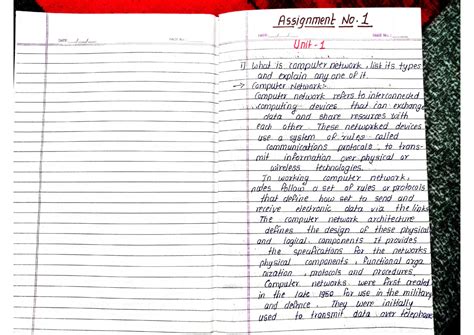 Assignment No. 1
DATE
DATE
Unit - 1
1) What is computer network, list its types
and explain any one of it.
→ Computer Network:-
Computer network refers to interconnected
computing devices that can exchange
data and share resources with
each other These networked devices
use a system of rules called
communications protocols, to trans-
mit information over physical or
wireless technologies.
In working computer network,
nodes follow a set of rules or protocols
that define how set to send and
receive electronic data via the links
The computer network architecture
defines the design of these physical
and logical components It provides
the specifications for the networks
physical components, functional orga
nization, protocols and procedures.
Computer networks were first created
in the late 1950 for use in the military
and defence. They were initially
used to transmit data over telephone